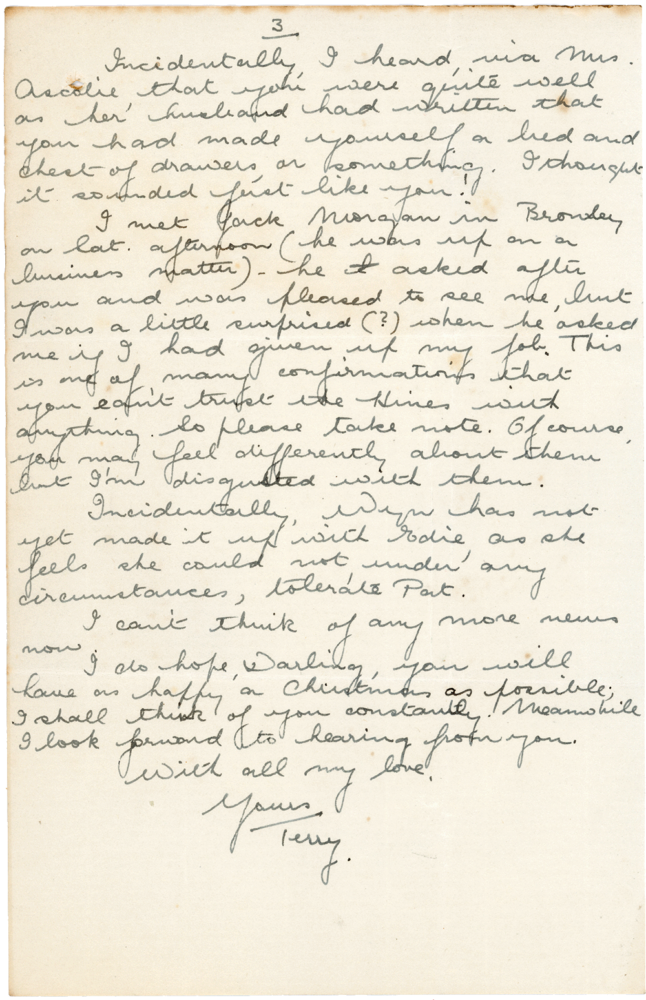 3
Incidentally, I heard, via Mrs.
Ascolie that you were quite well
as her husband had written that
you had made yourself a bed and
chest of drawers, or something. I thought
it sounded just like you!
I met Jack Morgan in Bromley
on Sat. afternoon (he was up on a
business matter) - he asked after
you and was pleased to see me, but
I was a little surprised (?) when he asked
me if I had given up my job. This
is one of many confirmations that
you can't trust the Hines with
anything. So please take note. Of course,
you may feel differently about them
but I'm disgusted with them.
Incidentally, Wyn has not
yet made it up with Edie, as she
feels she could not, under any
circumstances, tolerate Pat.
I can't think of any more news
now.
I do hope, Darling, you will
have as happy a Christmas as possible;
I shall think of you constantly. Meanwhile
I look forward to hearing from you.
With all my love,
Yours
Terry.